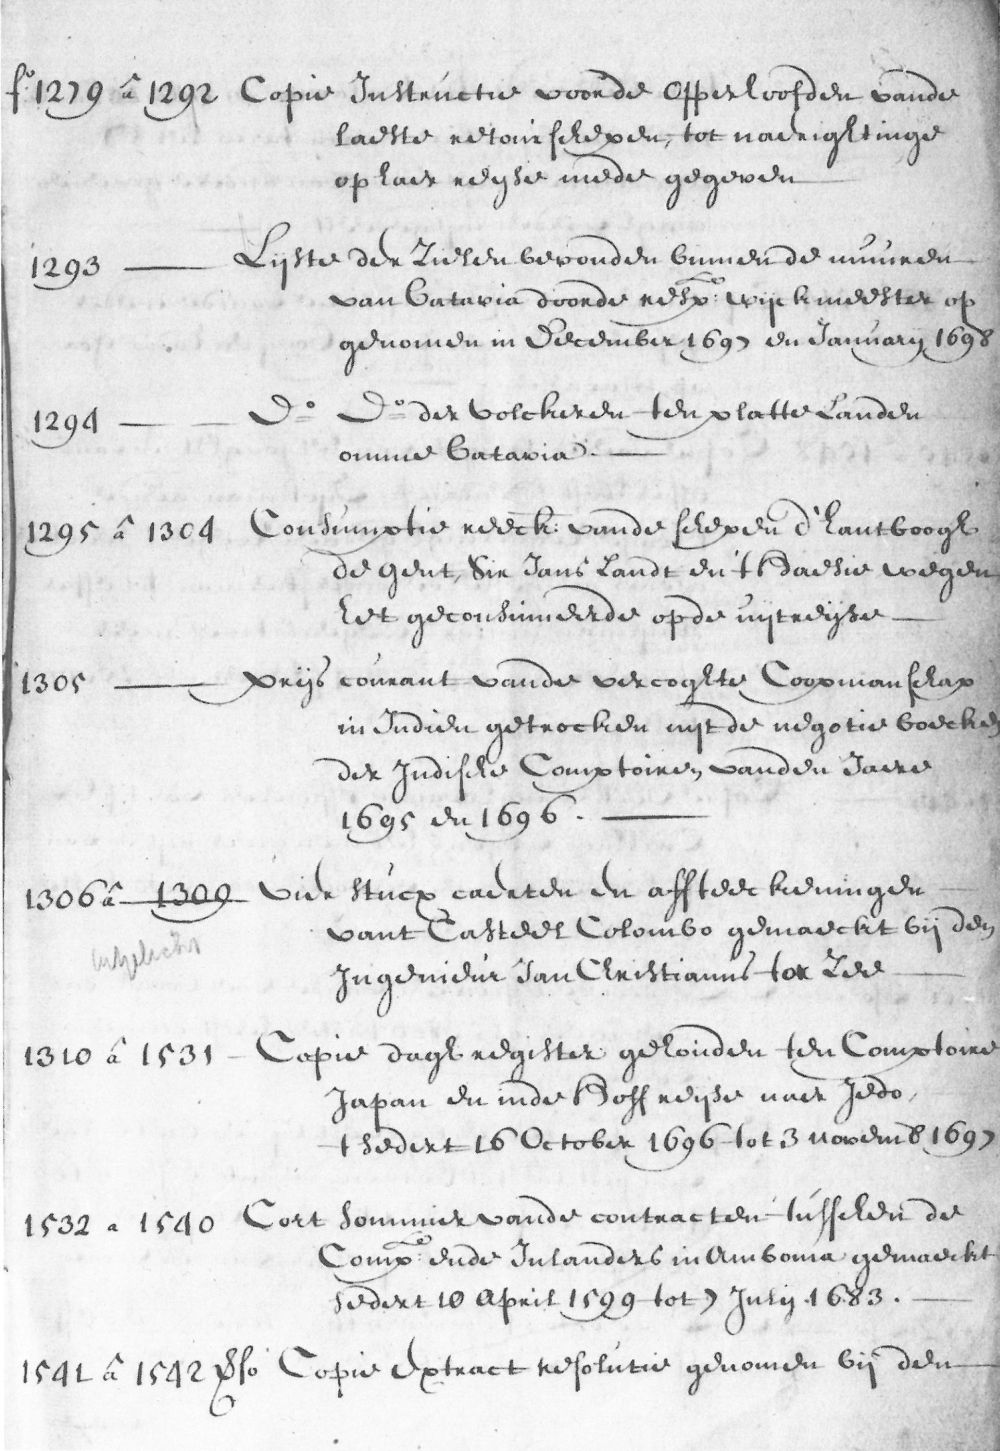 fo. 1279 â 1292 Copie Instructie voorde Opperhoofden vande
laeste retourschepen, tot naerightinge
op haer reijse mede gegeven
1293 — Lijste der Zielen bevonden binnen de muuren
van Batavia doorde respve: wijckmeester op
genomen in December 1697 en Januarij 1698
1294 — Do. Do. der volckeren ten platte Landen
omme Batavia. —
1295 â 1304 Consumptie reeck: vande schepen d' hantboogh
de Gent, Sir Jans Landt en 't Haesie wegen
het geconsumeerde opde uijtreijse —
1305 — prijs courant vande vercoghte Coopmanschap
in Indien getrocken uijt de negotie boecken
der Indische Comptoiren vanden Jaere
1695 en 1696. —
1306 â 1309 vier stucx caerten en affteeckeningen
vant Casteel Colombo gemaeckt bij den
uitgelicht
Ingenieur Jan Christianus tor Zee —
1310 â 1531 — Copie daghregister gehouden ten Comptoire
Japan en inde Hoffreijse naer Jedo,
't sedert 16 October 1696 tot 3 novemb 1697
1532 a 1540 Cort sommier vande contracten tusschen de
Compe: ende Inlanders in Amboina gemaeckt
sedert 10 April 1599 tot 7 Julij 1683. —
1541 â 1542 Copie extract resolutie genomen bij den